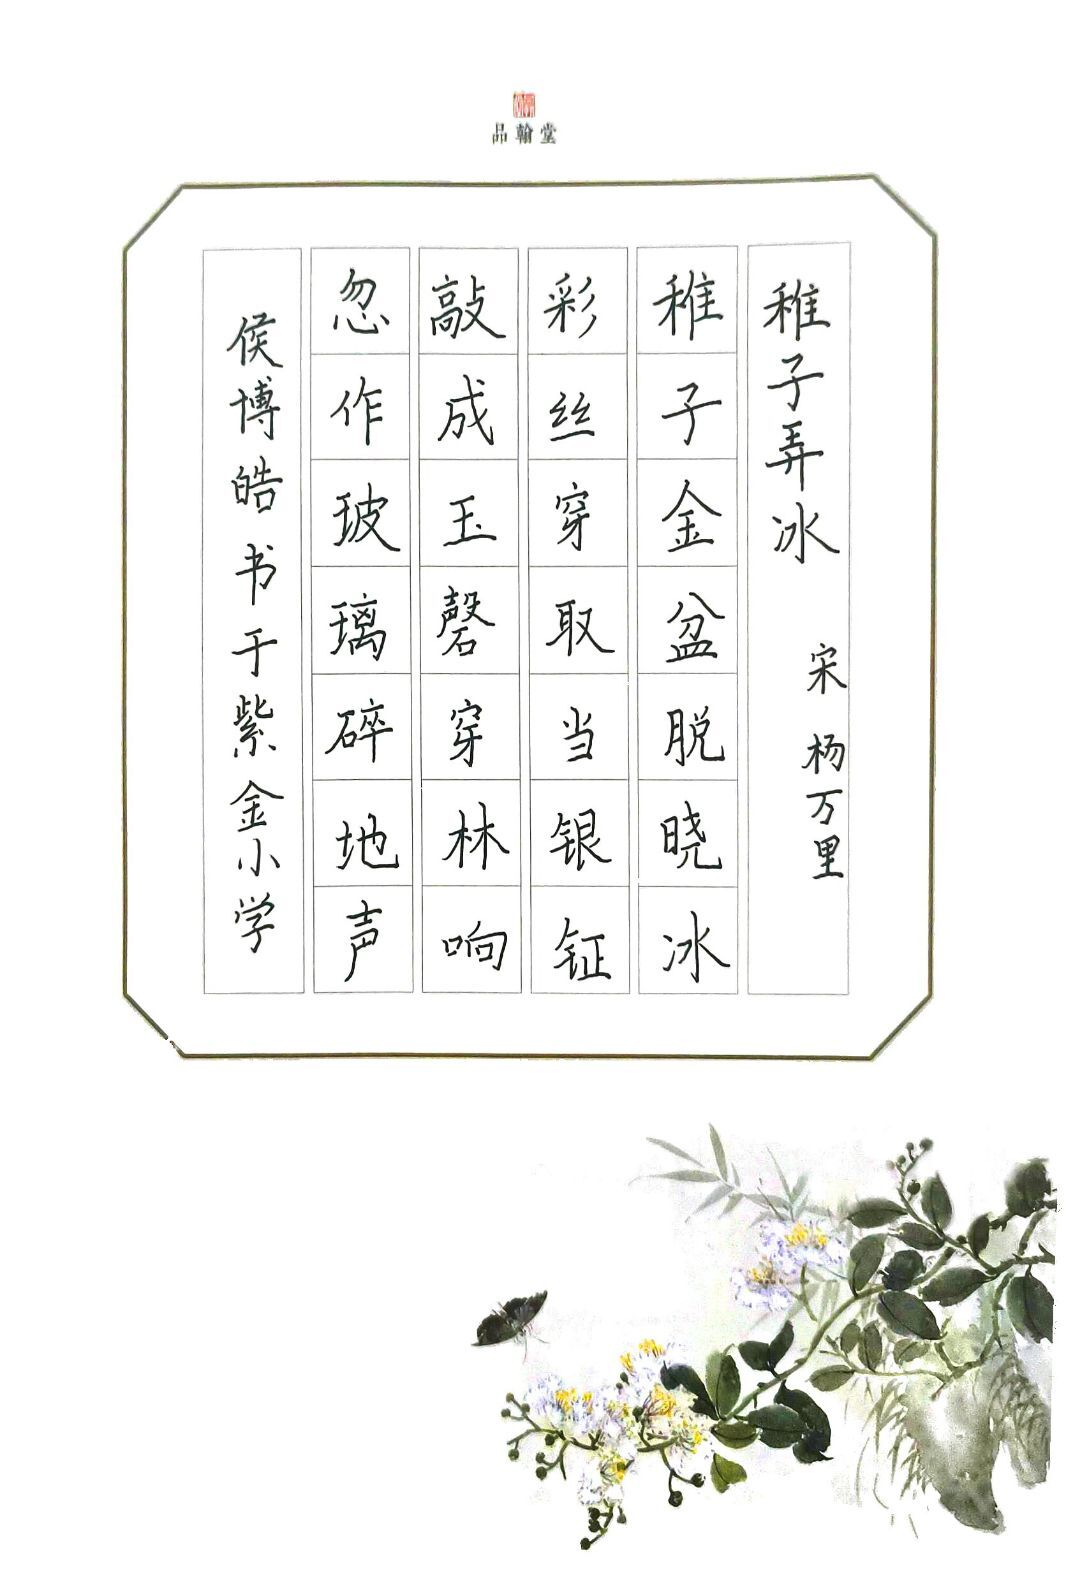 品翰堂
稚子弄冰 宋 杨万里
稚子金盆脱晓冰
彩丝穿取当银钲
敲成玉磬穿林响
忽作玻璃碎地声
侯博皓书于紫金小学